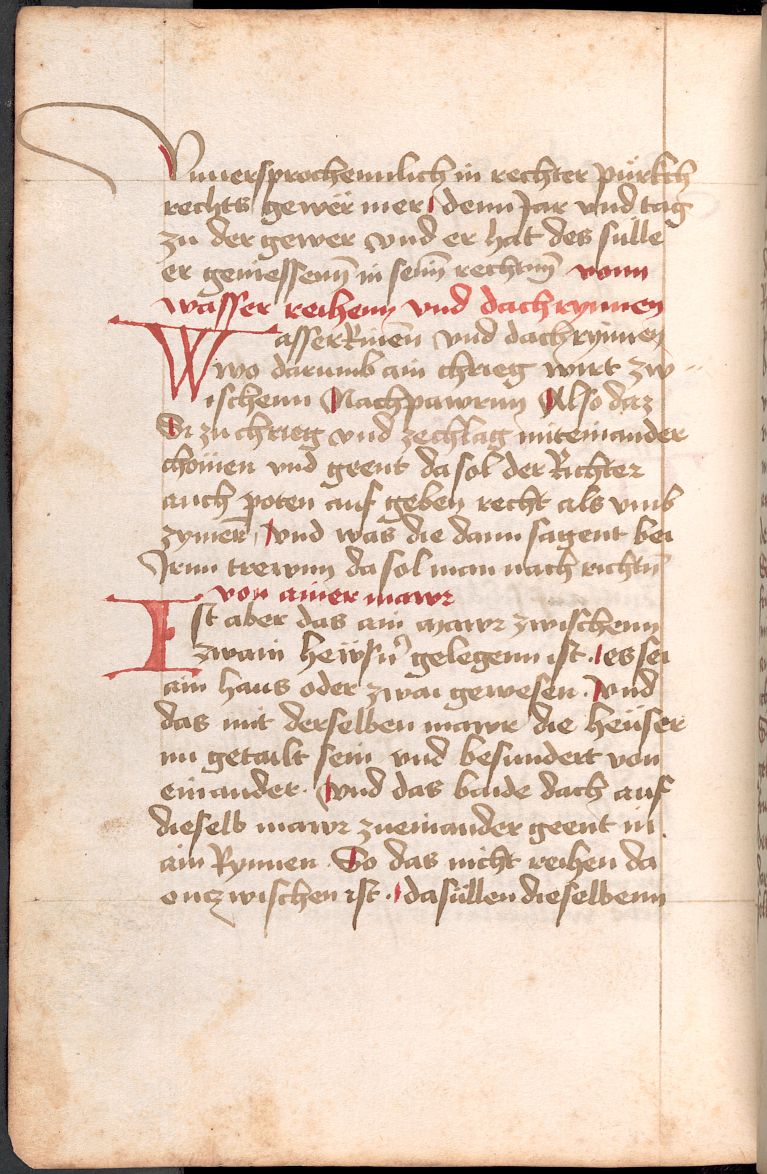 Vnuersprochennlich in rechter pürkch
rechts gewër mer denn Jar vnd tag
zu der gewer vnd er hat des sülle
er geniessenn in seim rechtnn vonn
wasser reihenn vnd dachrynnen
Wasser Rinen vnd dachrynnen
wo darumb ain chrieg wirt zw
ischenn Nachpawrnn Also daz
Si zu chrieg vnd zechlag miteinander
chömen vnd geent da sol der Richter
auch poten auf geben recht als vmb
zymer Vnd was die dann sagent bei
Jrnn trewnn da sol man nach richtn
von ainer mawr
Ist aber das ain mawr zwischenn
zwain heüsn gelegenn ist . es sei
ain haus oder zwai gewesen . Vnd
das mit derselben mawr die heüser
nu getailt sein vnd besundert von
einander . Vnd das baide dach auf
dieselb mawr zueinander geent in
ain Rynnen . So das nicht reihen da
enczwischen ist . da süllen dieselbenn